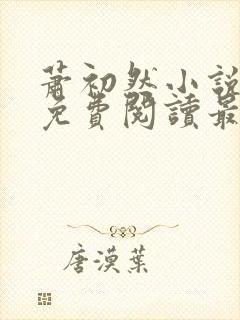 蕭初然小說
免費閱讀最
唐漠葉